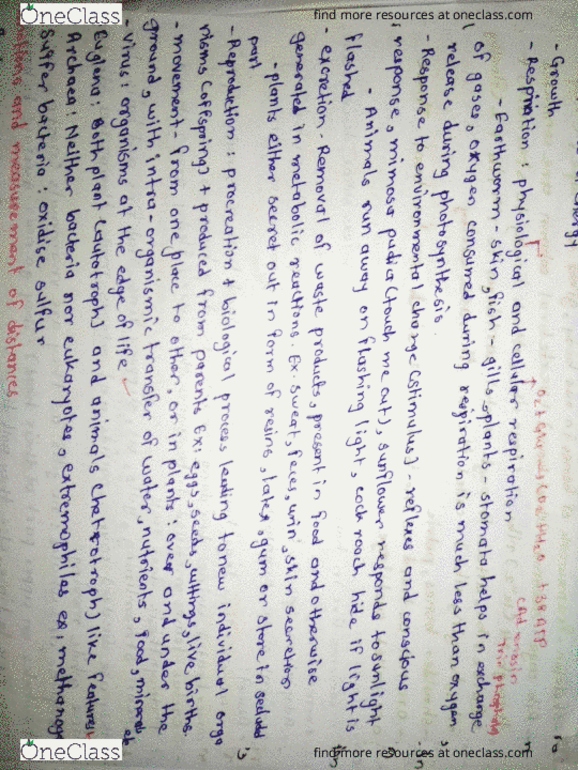 OneClass
find more resources at oneclass.com
- Growth
- Respiration : physiological and cellular respiration
- Earthworm - skin, fish - gills, plants - stomata helps in exchange
of gases, oxygen consumed during respiration is much less than oxygen
release during photosynthesis.
- Response to environmental change (stimulus) - reflexes and conscious
response, mimosa pudica (touch me out), sunflower responds to sunlight
- Animals run away on flashing light, cockroach hide if light is
flashed
- excretion - Removal of waste products, present in food and otherwise
generated in metabolic reactions. Ex: sweat, feces, urin, skin secretion
- plants either secret out in form of resins, latex, gum or store in
part
- Reproduction : procreation + biological process leading to new individual orga
nisms (offspring) + produced from parents Ex: eggs, seeds, cuttings, live births
- movement - from one place to other, or in plants : over and under the
ground, with intra-organismic transfer of water, nutrients, food, minerals
- Virus : organisms at the edge of life
Euglena : Both plant (autotroph) and animals (hetrotroph) like features
Archaea : Neither bacteria nor eukaryotes, extremophiles ex: methanog
Sulfer bacteria : oxidise sulfur
and measurement of distances
OneClass
find more resources at oneclass.com